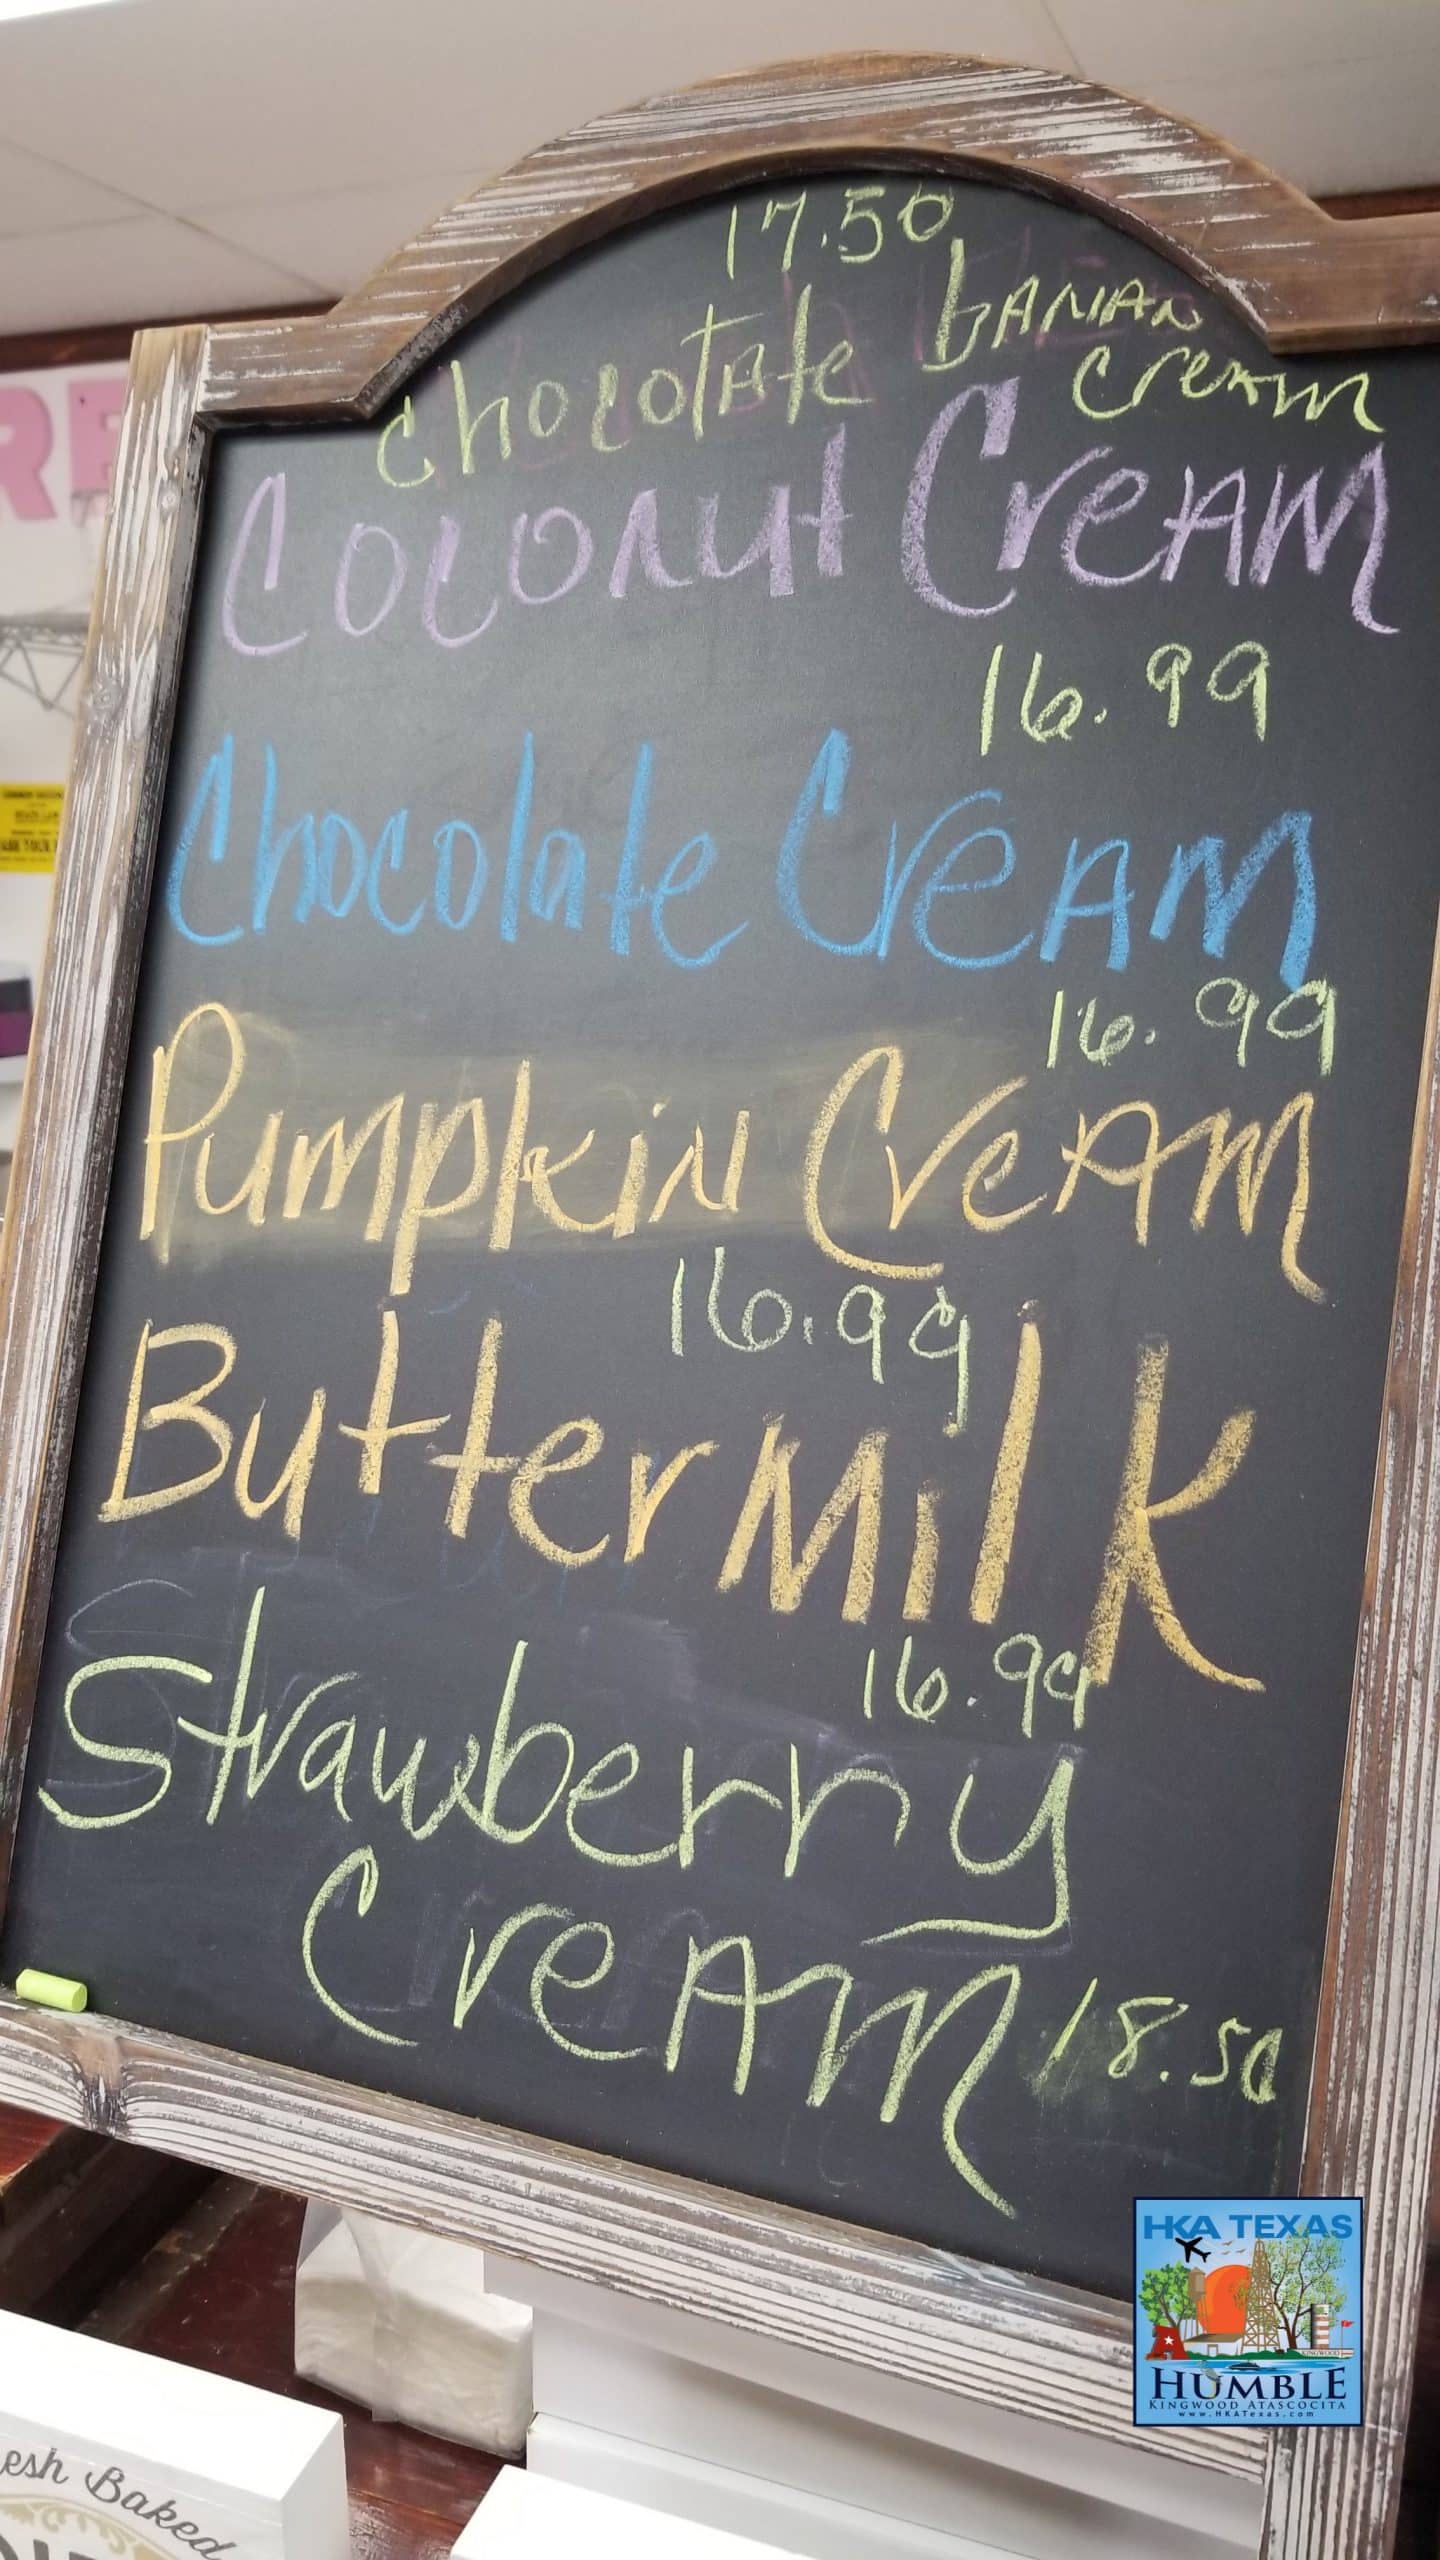 17.50
Chocolate banan cream
Coconut Cream
16.99
Chocolate Cream
16.99
Pumpkin Cream
16.99
Buttermilk
16.99
Strawberry
Cream 18.50
HKA TEXAS
KINGWOOD
HUMBLE
KINGWOOD ATASCOCITA
www.HKATexas.com
Baked